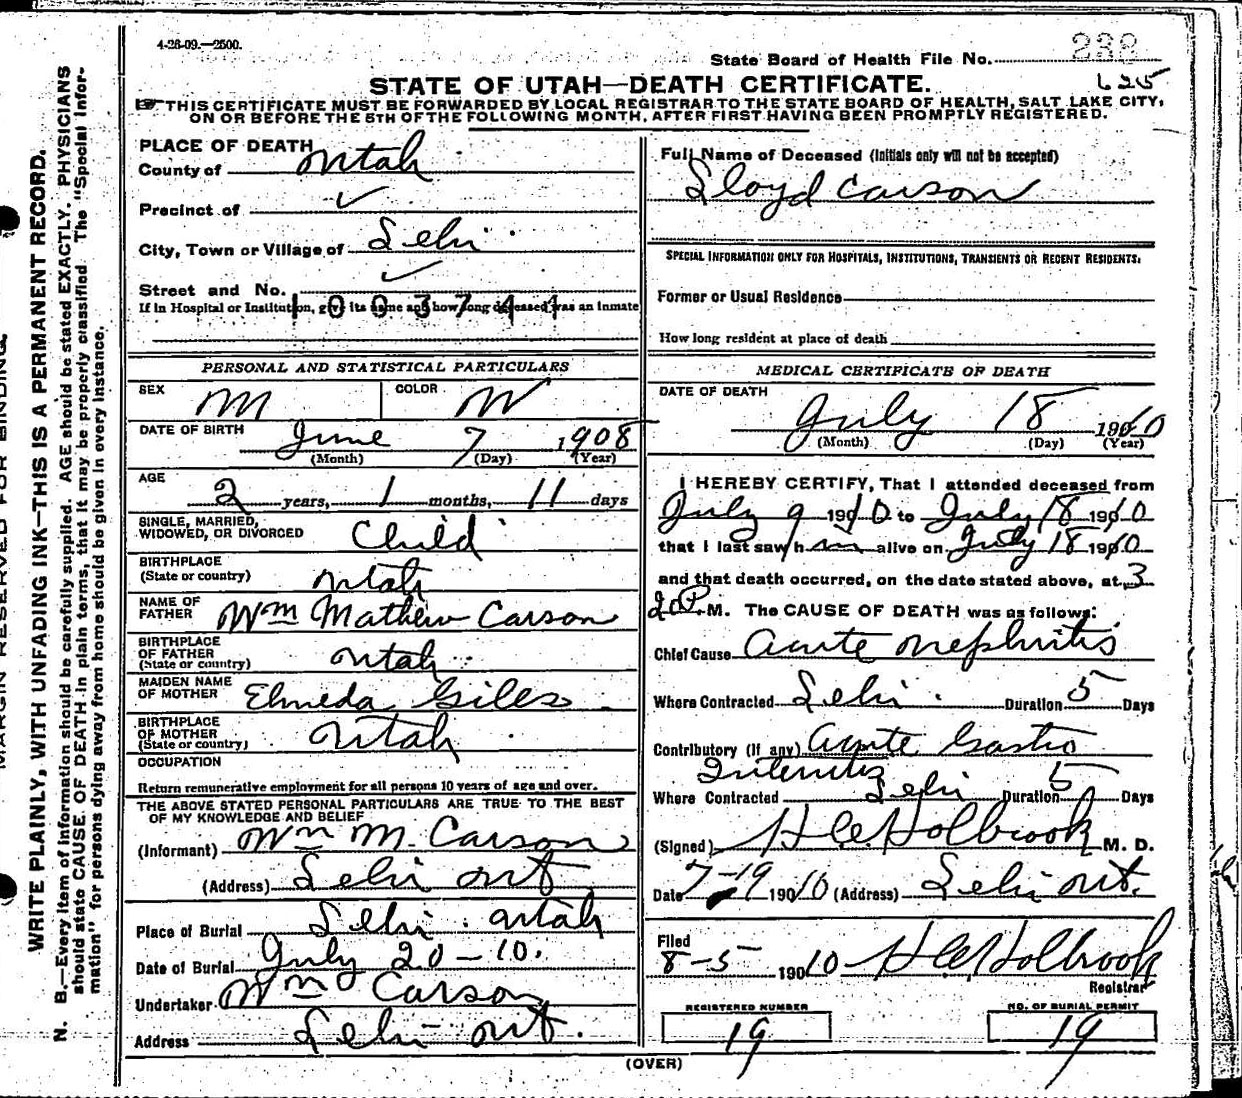 4-26-09.—2500.
State Board of Health File No. 238
STATE OF UTAH—DEATH CERTIFICATE.
625
THIS CERTIFICATE MUST BE FORWARDED BY LOCAL REGISTRAR TO THE STATE BOARD OF HEALTH, SALT LAKE CITY,
ON OR BEFORE THE 5TH OF THE FOLLOWING MONTH, AFTER FIRST HAVING BEEN PROMPTLY REGISTERED.
MARGIN RESERVED FOR BINDING
WRITE PLAINLY, WITH UNFADING INK—THIS IS A PERMANENT RECORD.
N. B.—Every item of information should be carefully supplied. AGE should be stated EXACTLY. PHYSICIANS
should state CAUSE OF DEATH in plain terms, that it may be properly classified The "Special Infor-
mation" for persons dying away from home should be given in every instance.
PLACE OF DEATH
County of Utah
Precinct of ✓
City, Town or Village of Lehi
Street and No. ✓
If in Hospital or Institution, give its name and how long deceased was an inmate
1003744
PERSONAL AND STATISTICAL PARTICULARS
SEX M COLOR W
DATE OF BIRTH June 7 1908
(Month) (Day) (Year)
AGE 2 years, 1 months, 11 days
SINGLE, MARRIED,
WIDOWED, OR DIVORCED Child
BIRTHPLACE
(State or country) Utah
NAME OF
FATHER Wm Mathew Carson
BIRTHPLACE
OF FATHER
(State or country) Utah
MAIDEN NAME
OF MOTHER Elmeda Giles
BIRTHPLACE
OF MOTHER
(State or country) Utah
OCCUPATION
Return remunerative employment for all persons 10 years of age and over.
THE ABOVE STATED PERSONAL PARTICULARS ARE TRUE TO THE BEST
OF MY KNOWLEDGE AND BELIEF
(Informant) Wm M. Carson
(Address) Lehi Ut
Place of Burial Lehi Utah
Date of Burial July 20-10.
Undertaker Wm Carson
Address Lehi Ut.
Full Name of Deceased (Initials only will not be accepted)
Lloyd Carson
SPECIAL INFORMATION ONLY FOR HOSPITALS, INSTITUTIONS, TRANSIENTS OR RECENT RESIDENTS.
Former or Usual Residence
How long resident at place of death
MEDICAL CERTIFICATE OF DEATH
DATE OF DEATH
July 18 1910
(Month) (Day) (Year)
I HEREBY CERTIFY, That I attended deceased from
July 9 1910 to July 18 1910
that I last saw him alive on July 18 1910
and that death occurred, on the date stated above, at 3
20 P. M. The CAUSE OF DEATH was as follows:
Chief Cause Acute Nephritis
Where Contracted Lehi. Duration 5 Days
Contributory (if any) Acute Gastro
Interitis
Where Contracted Lehi Duration 5 Days
(Signed) H C Holbrook M. D.
Date 7-19 1910 (Address) Lehi Ut.
Filed
8-5 1910 H C Holbrook
Registrar
REGISTERED NUMBER
19
NO. OF BURIAL PERMIT
19
(OVER)